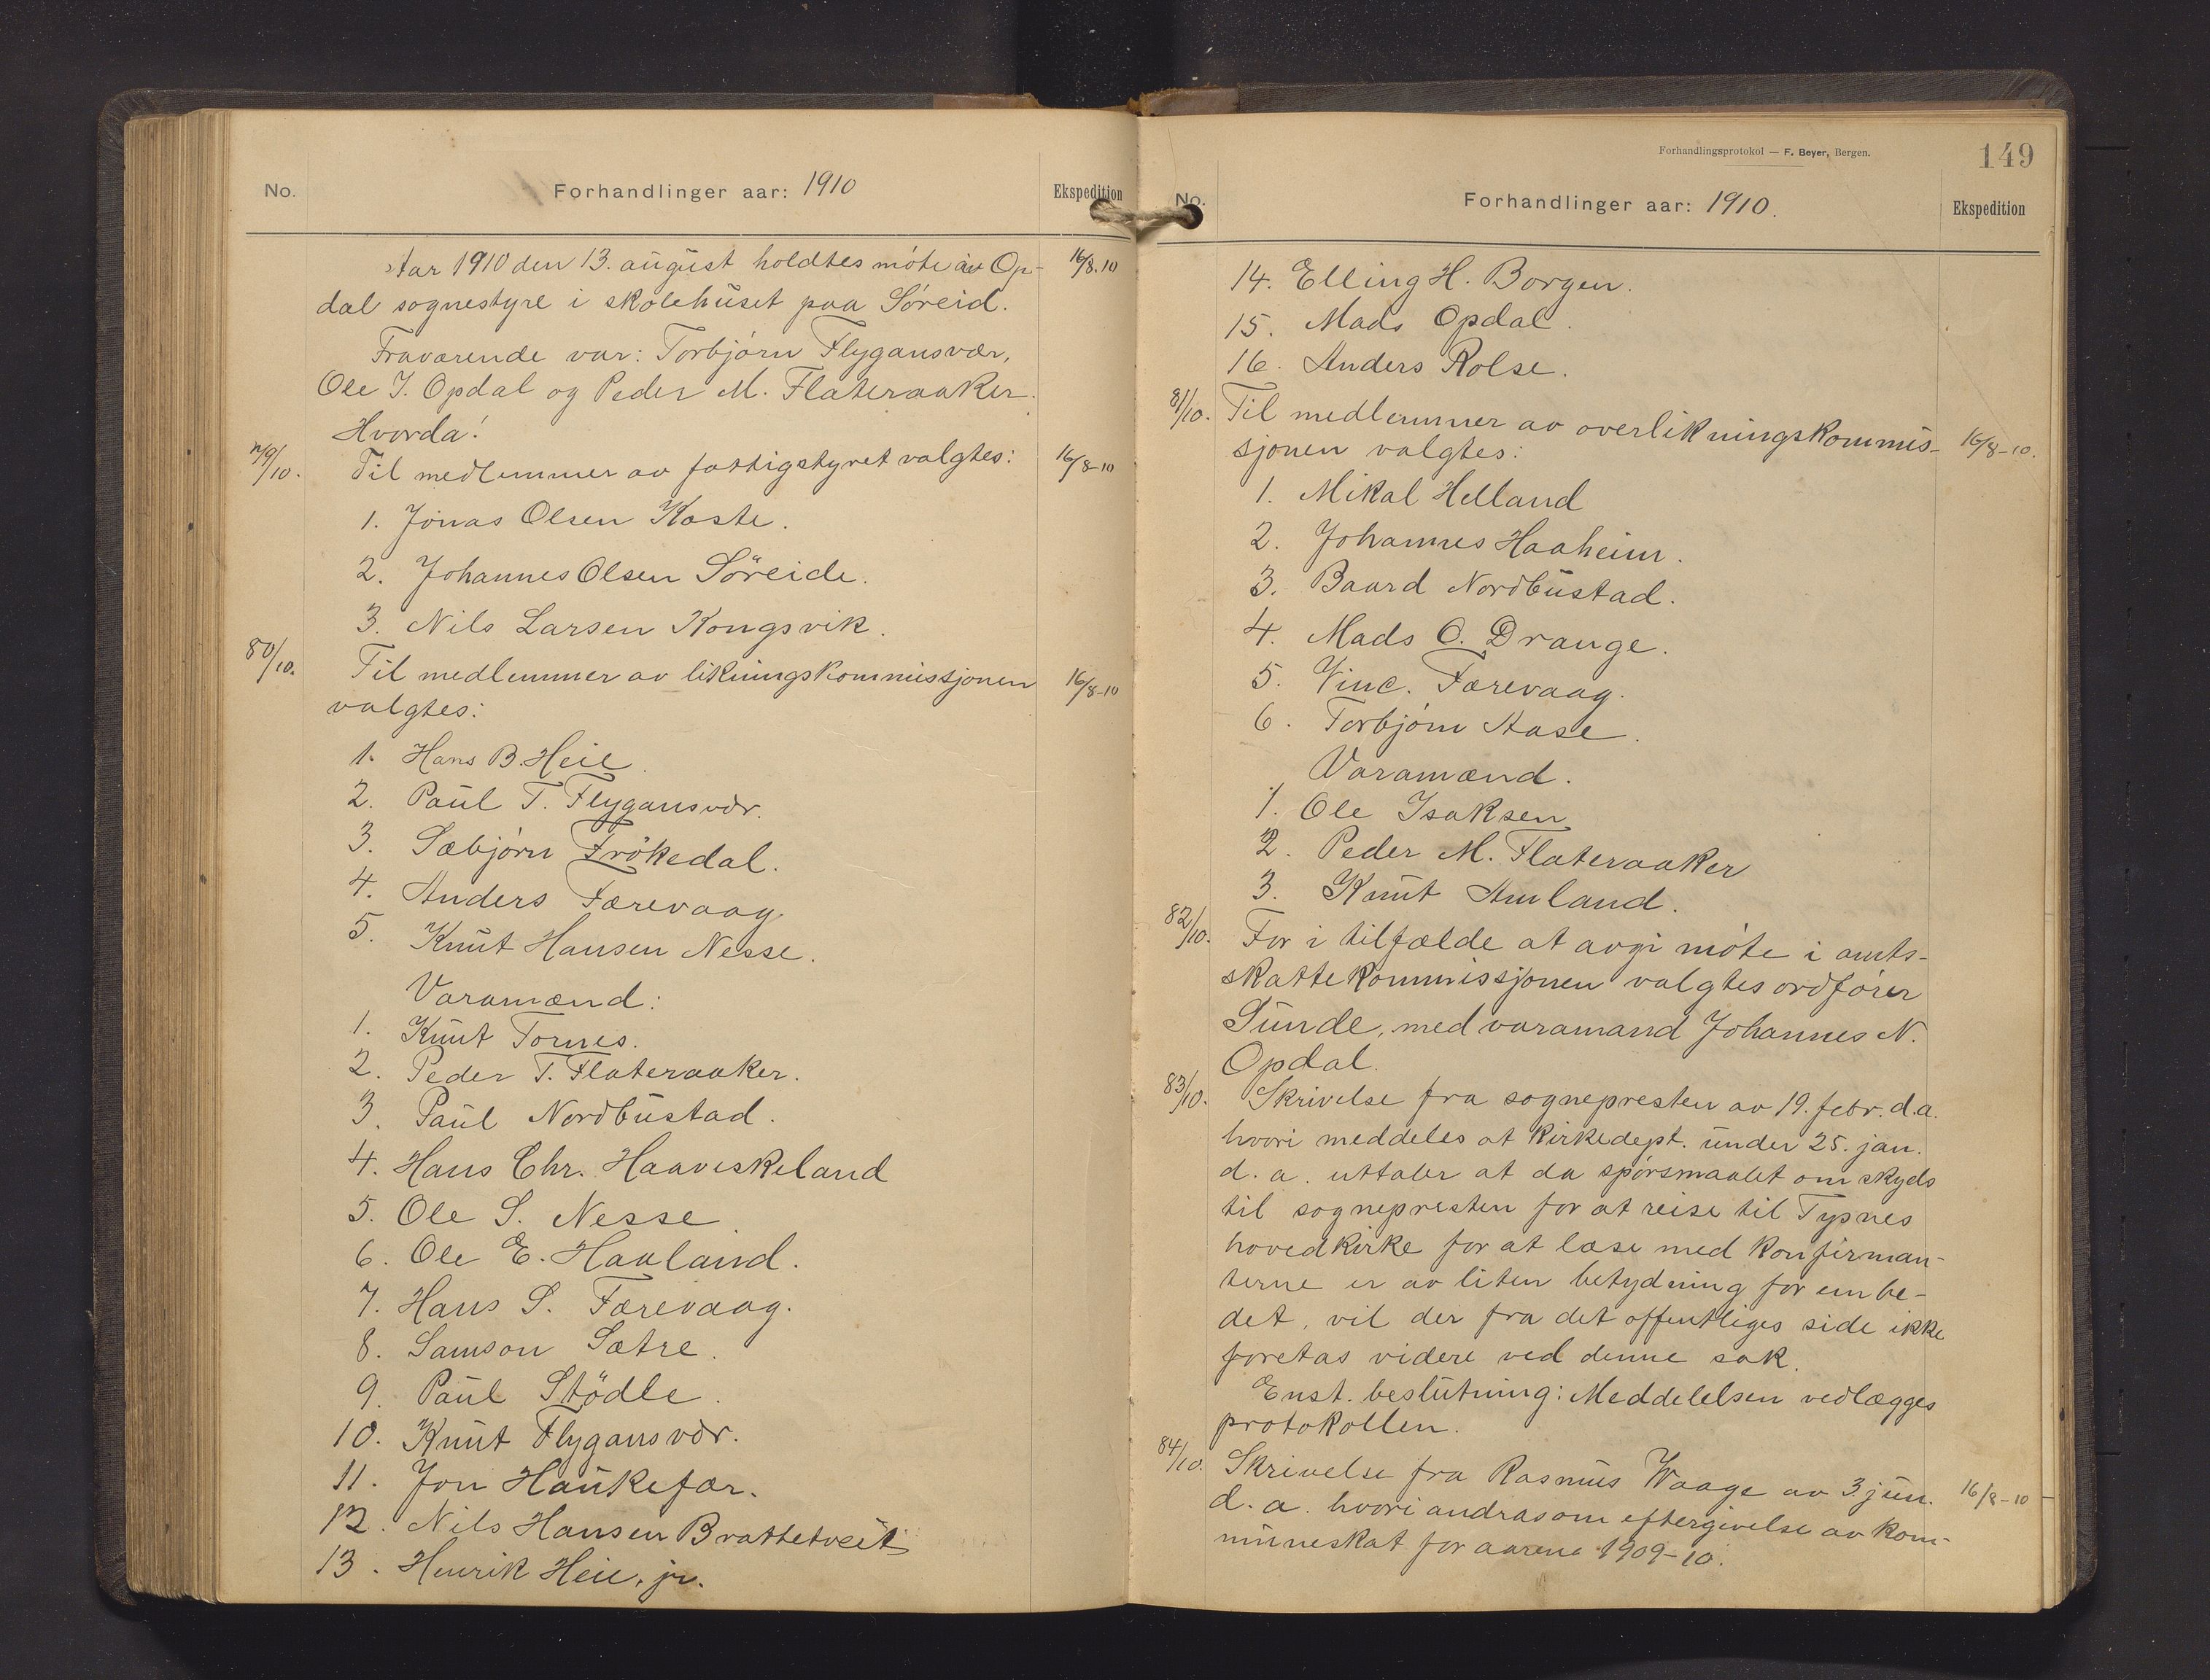 No. Forhandlinger aar: 1910 Ekspedition
Aar 1910 den 13. august holdtes møte av Op- 16/8.10
dal sognestyre i skolehuset paa Søreid.
Fraværende var: Torbjørn Flygansvær,
Ole J. Opdal og Peder M. Flateraaker.
Hvorda:
79/10. Til medlemmer av fattigstyret valgtes: 16/8-10
1. Jonas Olsen Koste.
2. Johannes Olsen Søreide.
3. Nils Larsen Kongsvik.
80/10. Til medlemmer av likningskommissjonen 16/8-10
valgtes:
1. Hans B. Heie.
2. Paul T. Flygansvær.
3. Sæbjørn Frøkedal.
4. Anders Færevaag.
5. Knut Hansen Nesse.
Varamænd:
1. Knut Tornes.
2. Peder T. Flateraaker.
3. Paul Nordbustad.
4. Hans Chr. Haaveskeland
5. Ole S. Nesse.
6. Ole E. Haaland.
7. Hans S. Færevaag.
8. Samson Sætre.
9. Paul Stødle.
10. Knut Flygansvær.
11. Jon Haukefær.
12. Nils Hansen Brattetveit
13. Henrik Heie, jr.
Forhandlingsprotokol — F. Beyer, Bergen. 149
No. Forhandlinger aar: 1910. Ekspedition
14. Elling H. Borgen.
15. Mads Opdal.
16. Anders Rolse.
81/10. Til medlemmer av overlikningskommis- 16/8-10.
sjonen valgtes:
1. Mikal Helland
2. Johannes Haaheim.
3. Baard Nordbustad.
4. Mads O. Drange.
5. Vinc. Færevaag.
6. Torbjørn Aase.
Varamænd.
1. Ole Isaksen
2. Peder M. Flateraaker
3. Knut Amland.
82/10. For i tilfælde at avgi møte i amts-
skattekommissjonen valgtes ordfører
Sunde, med varamand Johannes N.
Opdal.
83/10. Skrivelse fra sognepresten av 19. febr. d.a.
hvori meddeles at Kirkedept. under 25. jan.
d. a. uttaler at da spørsmaalet om skyds
til sognepresten for at reise til Tysnes
hovedkirke for at læse med konfirman-
terne er av liten betydning for embe-
det, vil der fra det offentliges side ikke
foretas videre ved denne sak.
Enst. beslutning: Meddelelsen vedlægges
protokollen.
84/10. Skrivelse fra Rasmus Waage av 3. jun. 16/8-10
d. a. hvori andrasom eftergivelse av kom-
muneskat for aarene 1909-10.